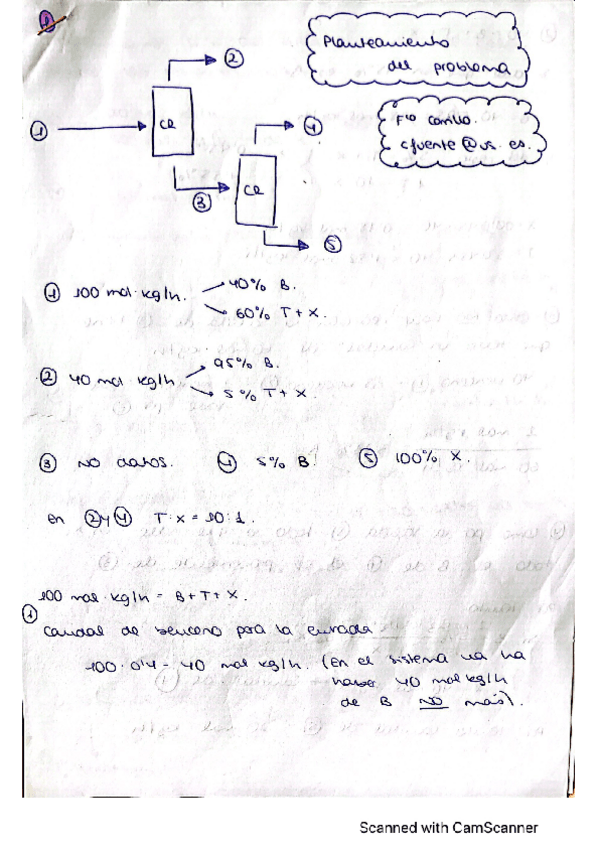 ②
Planteamiento
del problema
①
CR
④
Fco Carrillo.
cfuente@us.es.
③
CR
⑤
① 100 mol·kg/h. 40% B.
60% T + X.
② 40 mol kg/h 95% B.
5% T + X.
③ NO datos. ④ 5% B. ⑤ 100% X.
en ② y ④ T:X = 10:1.
100 mol·kg/h = B + T + X.
①
Caudal de benceno para la entrada
100·0'4 = 40 mol kg/h. (En el sistema va ha
haber 40 mol kg/h
de B NO más).
Scanned with CamScanner